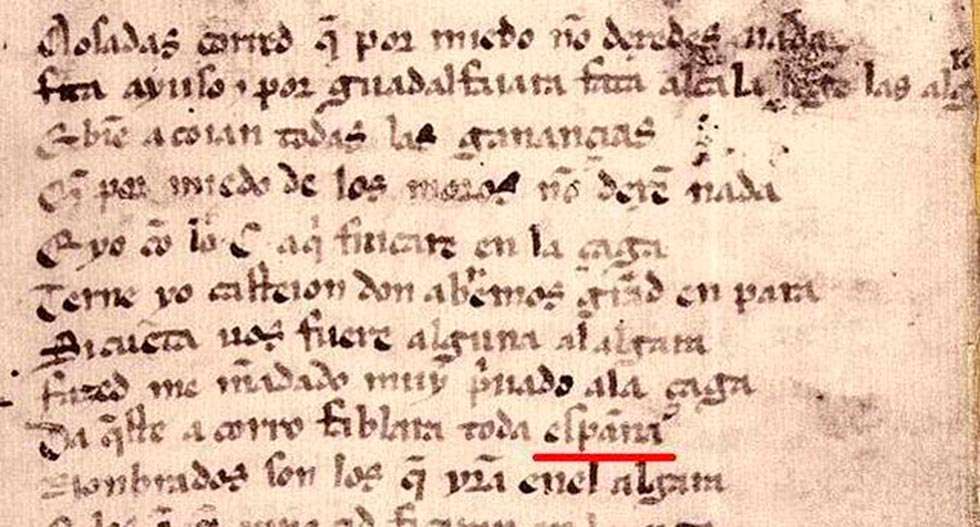 Aosadas corred q̃ por miedo nõ dexedes nada
fita ayuso ⁊ por guadalfaiara fata alcala legẽ las alg
E biẽ acoian todas las ganançias
Q̃ por miedo de los moros nõ dexẽ nada
E yo cõ lo C aq̃ fincare en la çaga
Terne yo casteion don abremos grãd en para
Si cueta uos fuere alguna al algara
fazed me mãdado muy p̃uado ala çaga
Da q̃ste acorro fablara toda espãna
Nonbrados son los q̃ yrã enel algara